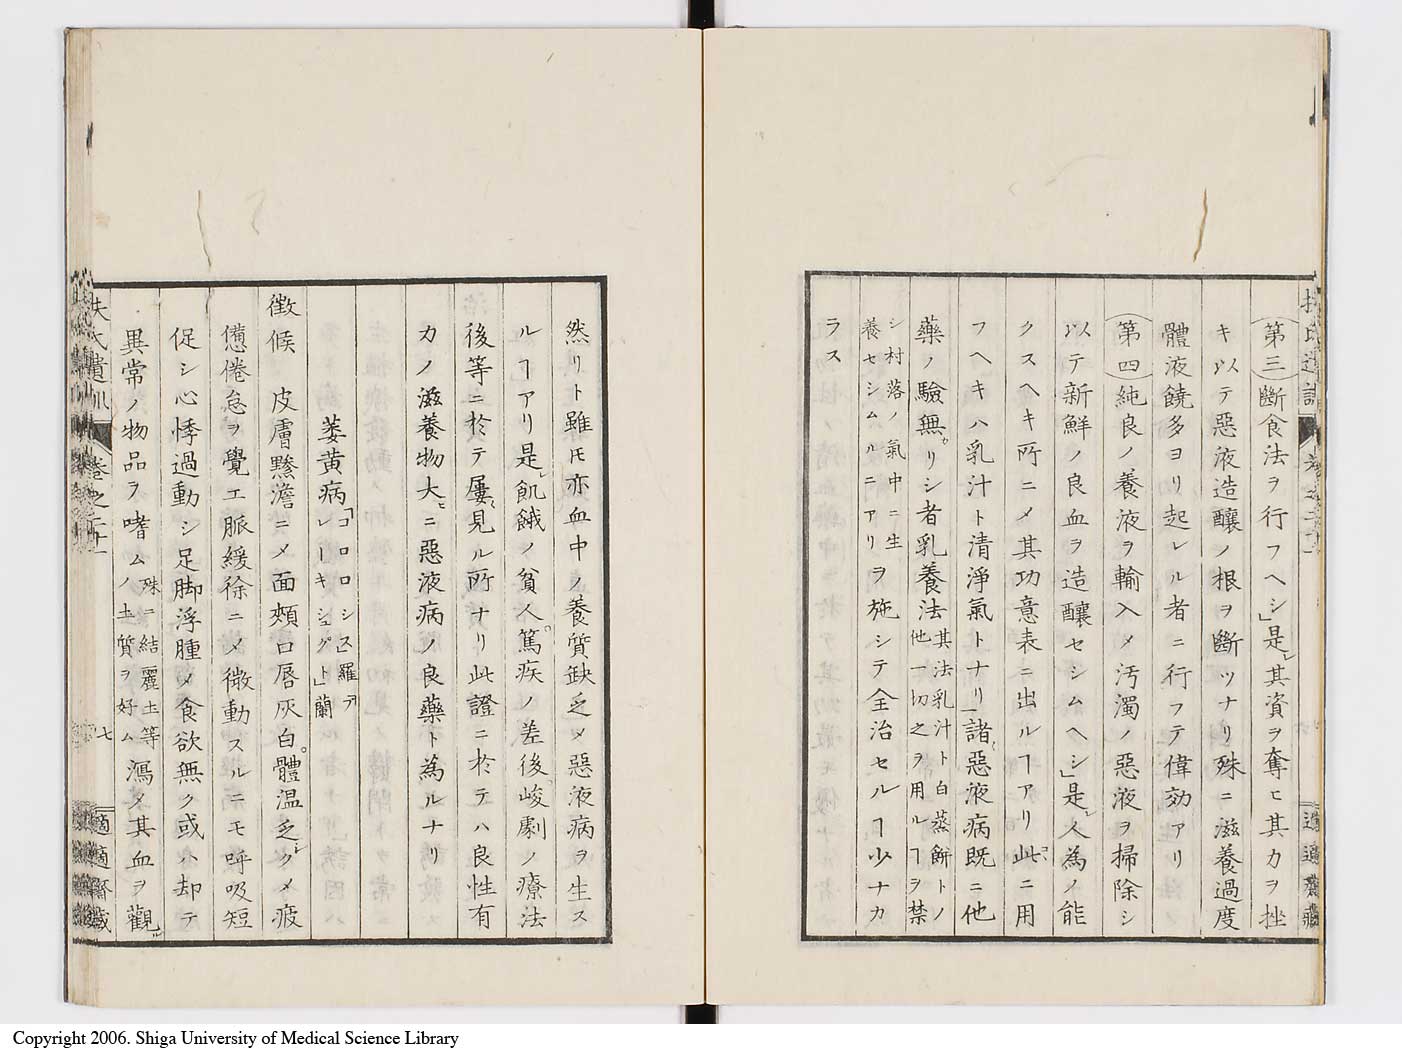 第三斷食法ヲ行フヘシ」是レ其資ヲ奪ヒ其力ヲ挫
キ以テ惡液造釀ノ根ヲ斷ツナリ殊ニ滋養過度
體液饒多ヨリ起レル者ニ行フテ偉効アリ
第四純良ノ養液ヲ輸入〆汚濁ノ惡液ヲ掃除シ
以テ新鮮ノ良血ヲ造釀セシムヘシ」是レ人為ノ能
クスヘキ所ニ〆其功意表ニ出ルヿアリ此ニ用
フヘキハ乳汁ト清淨氣トナリ」諸惡液病既ニ他
藥ノ驗無カリシ者乳養法其法乳汁ト白蒸餅トノ他一切之ヲ用ルヿヲ禁
シ村落ノ氣中ニ生養セシムルニアリヲ施シテ全治セルヿ少ナカ
ラス
扶氏遺訓 卷之二十一
七
適適齋藏
然リト雖𪜈亦血中ノ養質缺乏〆惡液病ヲ生ス
ルヿアリ是レ飢餓ノ貧人篤疾ノ差後峻劇ノ療法
後等ニ於テ屢見ル所ナリ此證ニ於テハ良性有
力ノ滋養物大ニ惡液病ノ良藥ト為ルナリ
萎黄病「コロロシス」羅「ブレーキシュグト」蘭
徴候 皮膚黲澹ニ〆面頰口唇灰白體温乏ク〆疲
憊倦怠ヲ覺エ脈緩徐ニ〆微動スルニモ呼吸短
促シ心悸過動シ足脚浮腫〆食欲無ク或ハ却テ
異常ノ物品ヲ嗜ム殊ニ結麗土等ノ土質ヲ好ム瀉〆其血ヲ觀ル
Copyright 2006. Shiga University of Medical Science Library